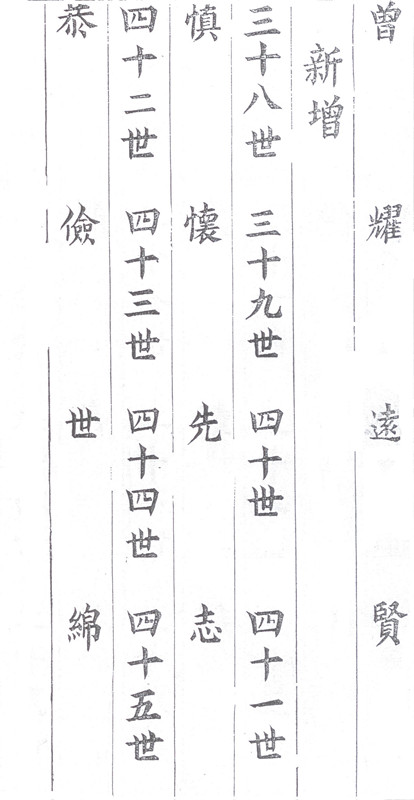 曾耀遠賢
新增
三十八世 三十九世 四十世 四十一世
慎懷先志
四十二世 四十三世 四十四世 四十五世
恭儉世綿